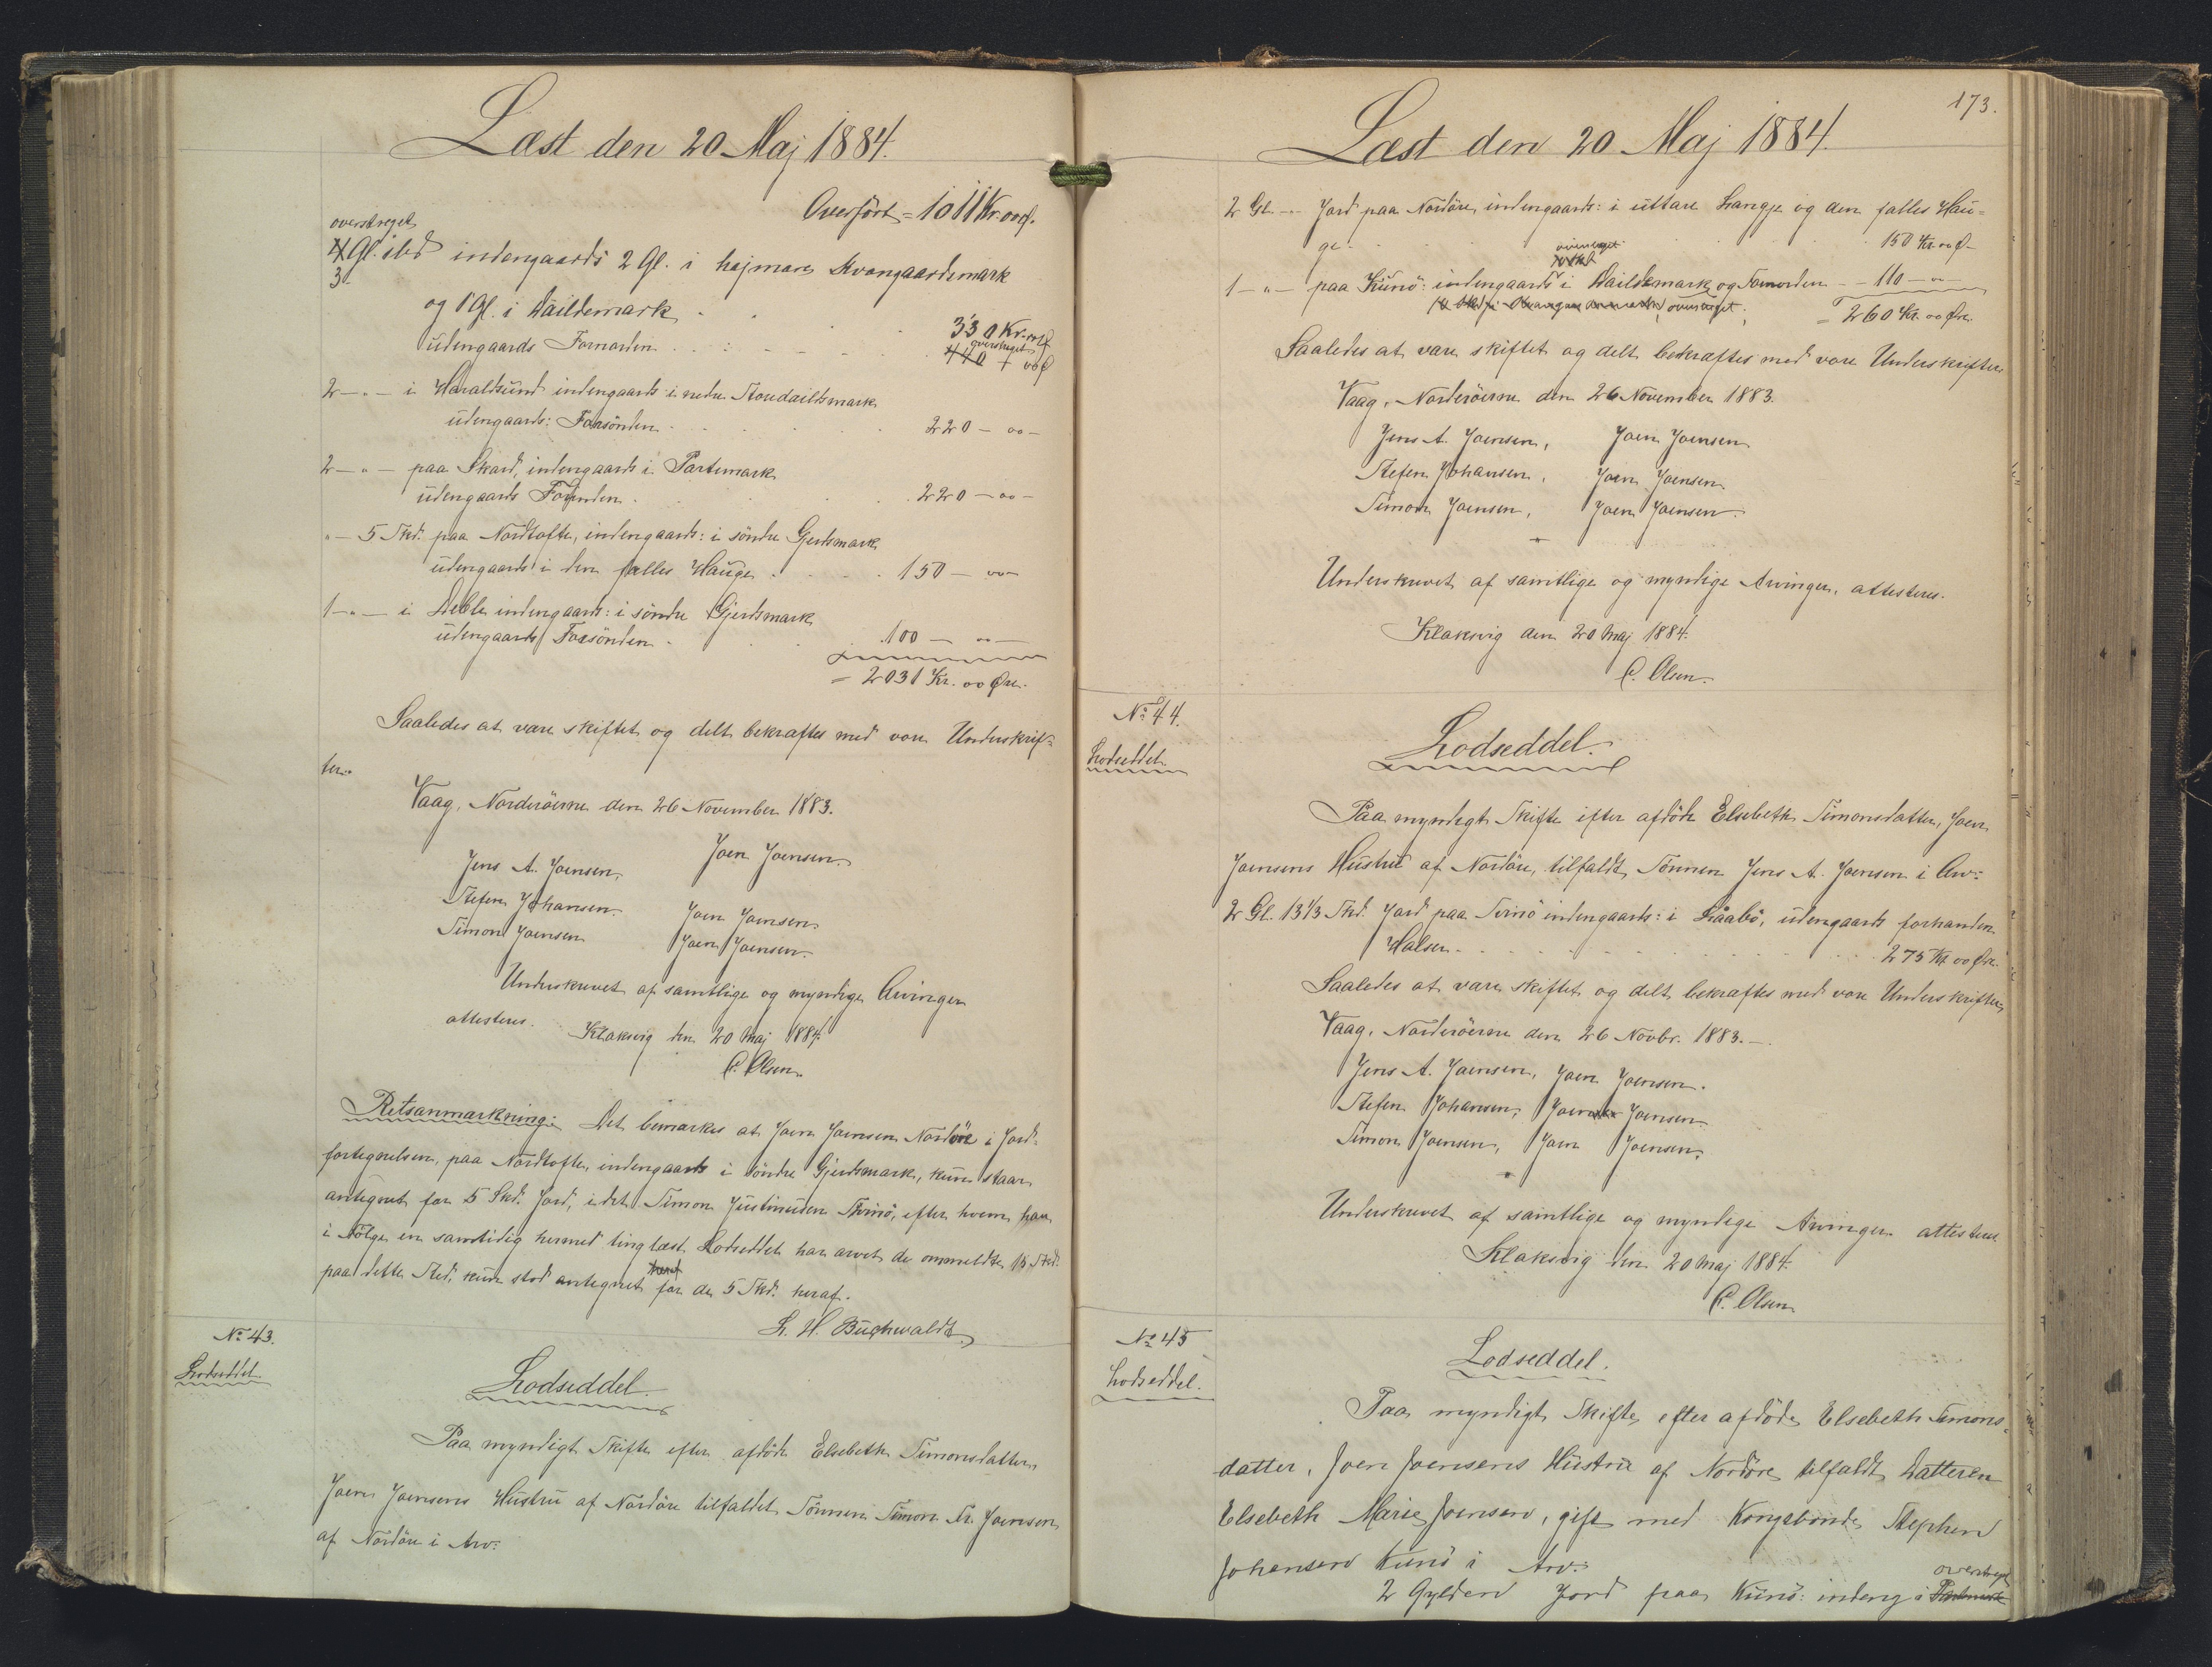 Læst den 20 Maj 1884.
Overført = 1011 Kr. 00 Ø.
overstreget
4 Gl. ibd indengaards 2 Gl. i hejmare Kvangaardsmark
3
og 1 Gl. i Dáildemark
330 Kr. 00 Ø
udengaards Fornorden
overstreget
440 + 00 Ø
2 — " — i Haraldsund indengaards i nedre Stoudaildsmark
udengaards: Forsønden 220 — 00 —
2 — " — paa Skard, indengaards i Partemark
udengaards 220 — 00 —
" — 5 Skd. paa Nordtofte, indengaards: i søndre Gjerdsmark
udengaards i den fælles Hauge 150 — 00
1 — " — i Deble indengaards: i søndre Gjerdsmark
udengaards Forsønden 100 — 00 —
= 2031 Kr. 00 Øre.
Saaledes at være skiftet og delt bekræftes med vore Underskrif-
ter.
Vaag, Norderøerne den 26 November 1883.
Jens A. Joensen, Joen Joensen
Stefen Johansen. Joen Joensen
Simon Joensen Joen Joensen.
Underskrevet af samtlige og myndige Arvinger
attesteres. Klaksvig den 20 Maj 1884.
C. Olsen.
Retsanmærkning: Det bemærkes at Joen Joensen Nordøre i Jord-
fortegnelsen, paa Nordtofte, indengaards i søndre Gjerdsmark, kun staar
antegnet for 5 Skd. Jord, idet Simon Justinusen Svinø, efter hvem han
i Følge en samtidig hermed tinglæst Lodseddel har arvet de ommeldte 15 Skd.
paa dette Sted, kun stod antegnet for de 5 Skd. heraf.
L. H. Buchwaldt
No 43.
Lodseddel.
Lodseddel.
Paa myndigt Skifte efter afdøde Elsebeth Simonsdatter,
Joen Joensens Hustru af Nordøre tilfaldt Sønnen Simon Fr. Joensen
af Nordøre i Arv:
173.
Læst den 20 Maj 1884.
2 Gl. — Jord paa Nordøre, indengaards: i uttare Langge og den fælles Hau-
ge 150 Kr. 00 Ø —
overstreget
1 — " — paa Kunø: indengaards i Daildemark og Fornorden — 110 — " —
overstreget
= 260 Kr. 00 Øre.
Saaledes at være skiftet og delt bekræftes med vore Underskrifter.
Vaag, Norderøerne den 26 November 1883.
Jens A. Joensen, Joen Joensen
Stefen Johansen, Joen Joensen.
Simon Joensen, Joen Joensen.
Underskrevet af samtlige og myndige Arvinger, attesteres.
Klaksvig den 20 Maj 1884.
C. Olsen.
No 44.
Lodseddel.
Lodseddel.
Paa myndigt Skifte efter afdøde Elsebeth Simonsdatter, Joen
Joensens Hustru af Nordøre, tilfaldt Sønnen Jens A. Joensen i Arv:
2 Gl. 13 1/3 Skd. Jord paa Svinø indengaards: i Láabø, udengaards forhanden
Halsen 275 Kr. 00 Øre.
Saaledes at være skiftet og delt bekræftes med vore Underskrifter
Vaag, Norderøerne den 26 Novbr. 1883. —
Jens A. Joensen, Joen Joensen.
Stefen Johansen, Joen Joensen
Simon Joensen, Joen Joensen.
Underskrevet af samtlige og myndige Arvinger attesteres
Klaksvig den 20 Maj 1884.
C. Olsen
No 45
Lodseddel.
Lodseddel.
Paa myndigt Skifte efter afdøde Elsebeth Simons-
datter, Joen Joensens Hustru af Nordøre tilfaldt Datteren
Elsebeth Marie Joensen, gift med Kongsbonde Stephen
Johansen Kunø i Arv:
overstreget
2 Gylden Jord paa Kunø: indeng i Partemark